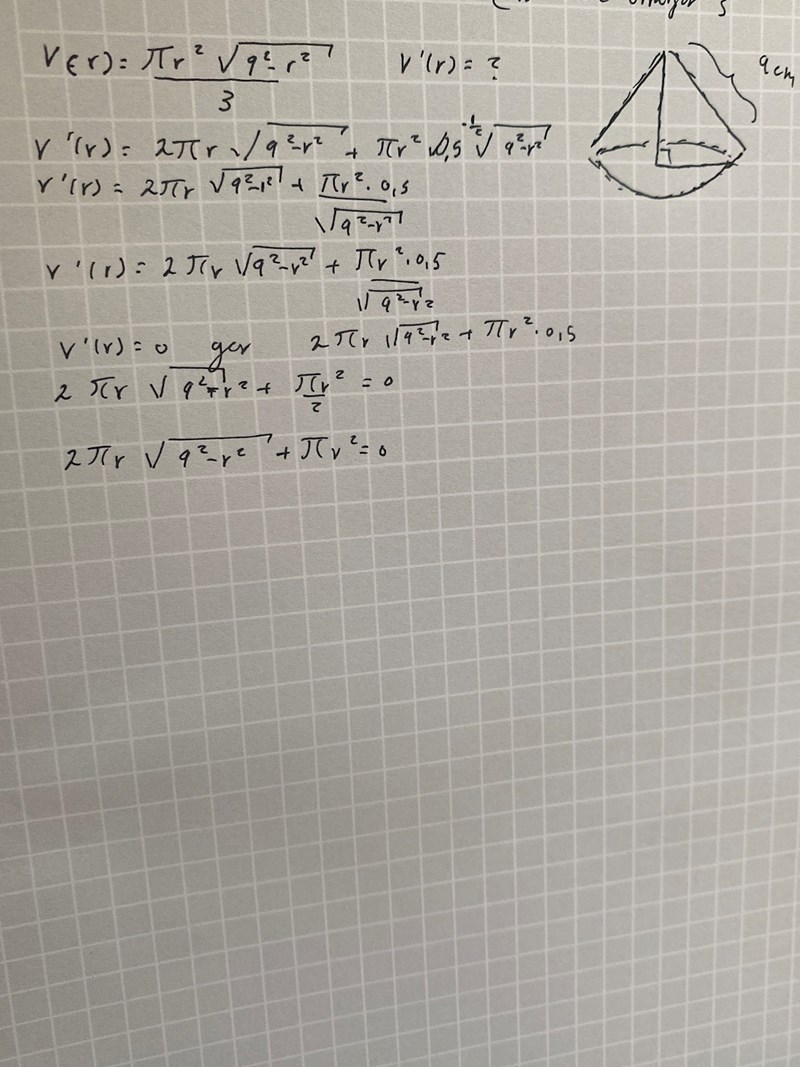 V(r) = πr² √(9² - r²) / 3   V'(r) = ?
9 cm
V'(r) = 2πr √(9² - r²) + πr² · 0,5 √(9² - r²)^(-1/2)
V'(r) = 2πr √(9² - r²) + πr² · 0,5 / √(9² - r²)
V'(r) = 2πr √(9² - r²) + πr² · 0,5 / √(9² - r²)
V'(r) = 0 ger 2πr √(9² - r²) + πr² · 0,5
2πr √(9² - r²) + πr² / 2 = 0
2πr √(9² - r²) + πr² = 0